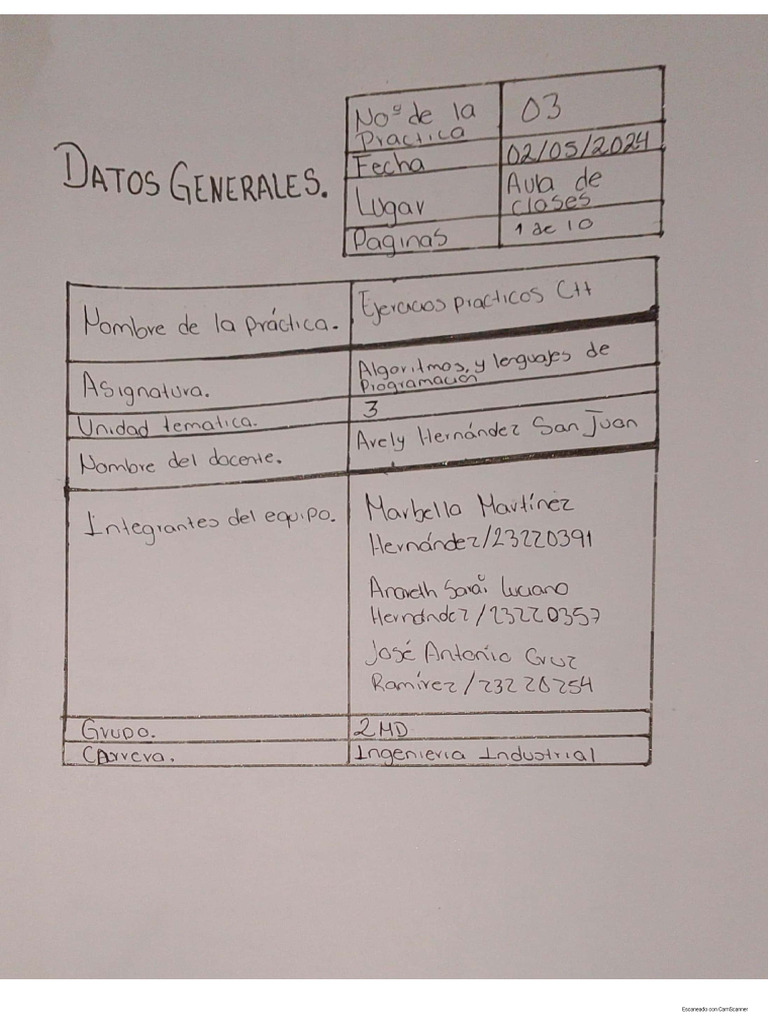 DATOS GENERALES.
Noº de la Practica 03
Fecha 02/05/2024
Lugar Aula de clases
Paginas 1 de 10
Nombre de la práctica. Ejercicios practicos C++
Asignatura. Algoritmos, y lenguajes de Programación
Unidad tematica. 3
Nombre del docente. Arely Hernández San Juan
Integrantes del equipo. Marbella Martínez
Hernández/23220391
Anareth Saraí Luciano
Hernández/23220357
José Antonio Cruz
Ramírez/23220254
Grupo. 2MD
Carrera. Ingenieria Industrial
Escaneado con CamScanner